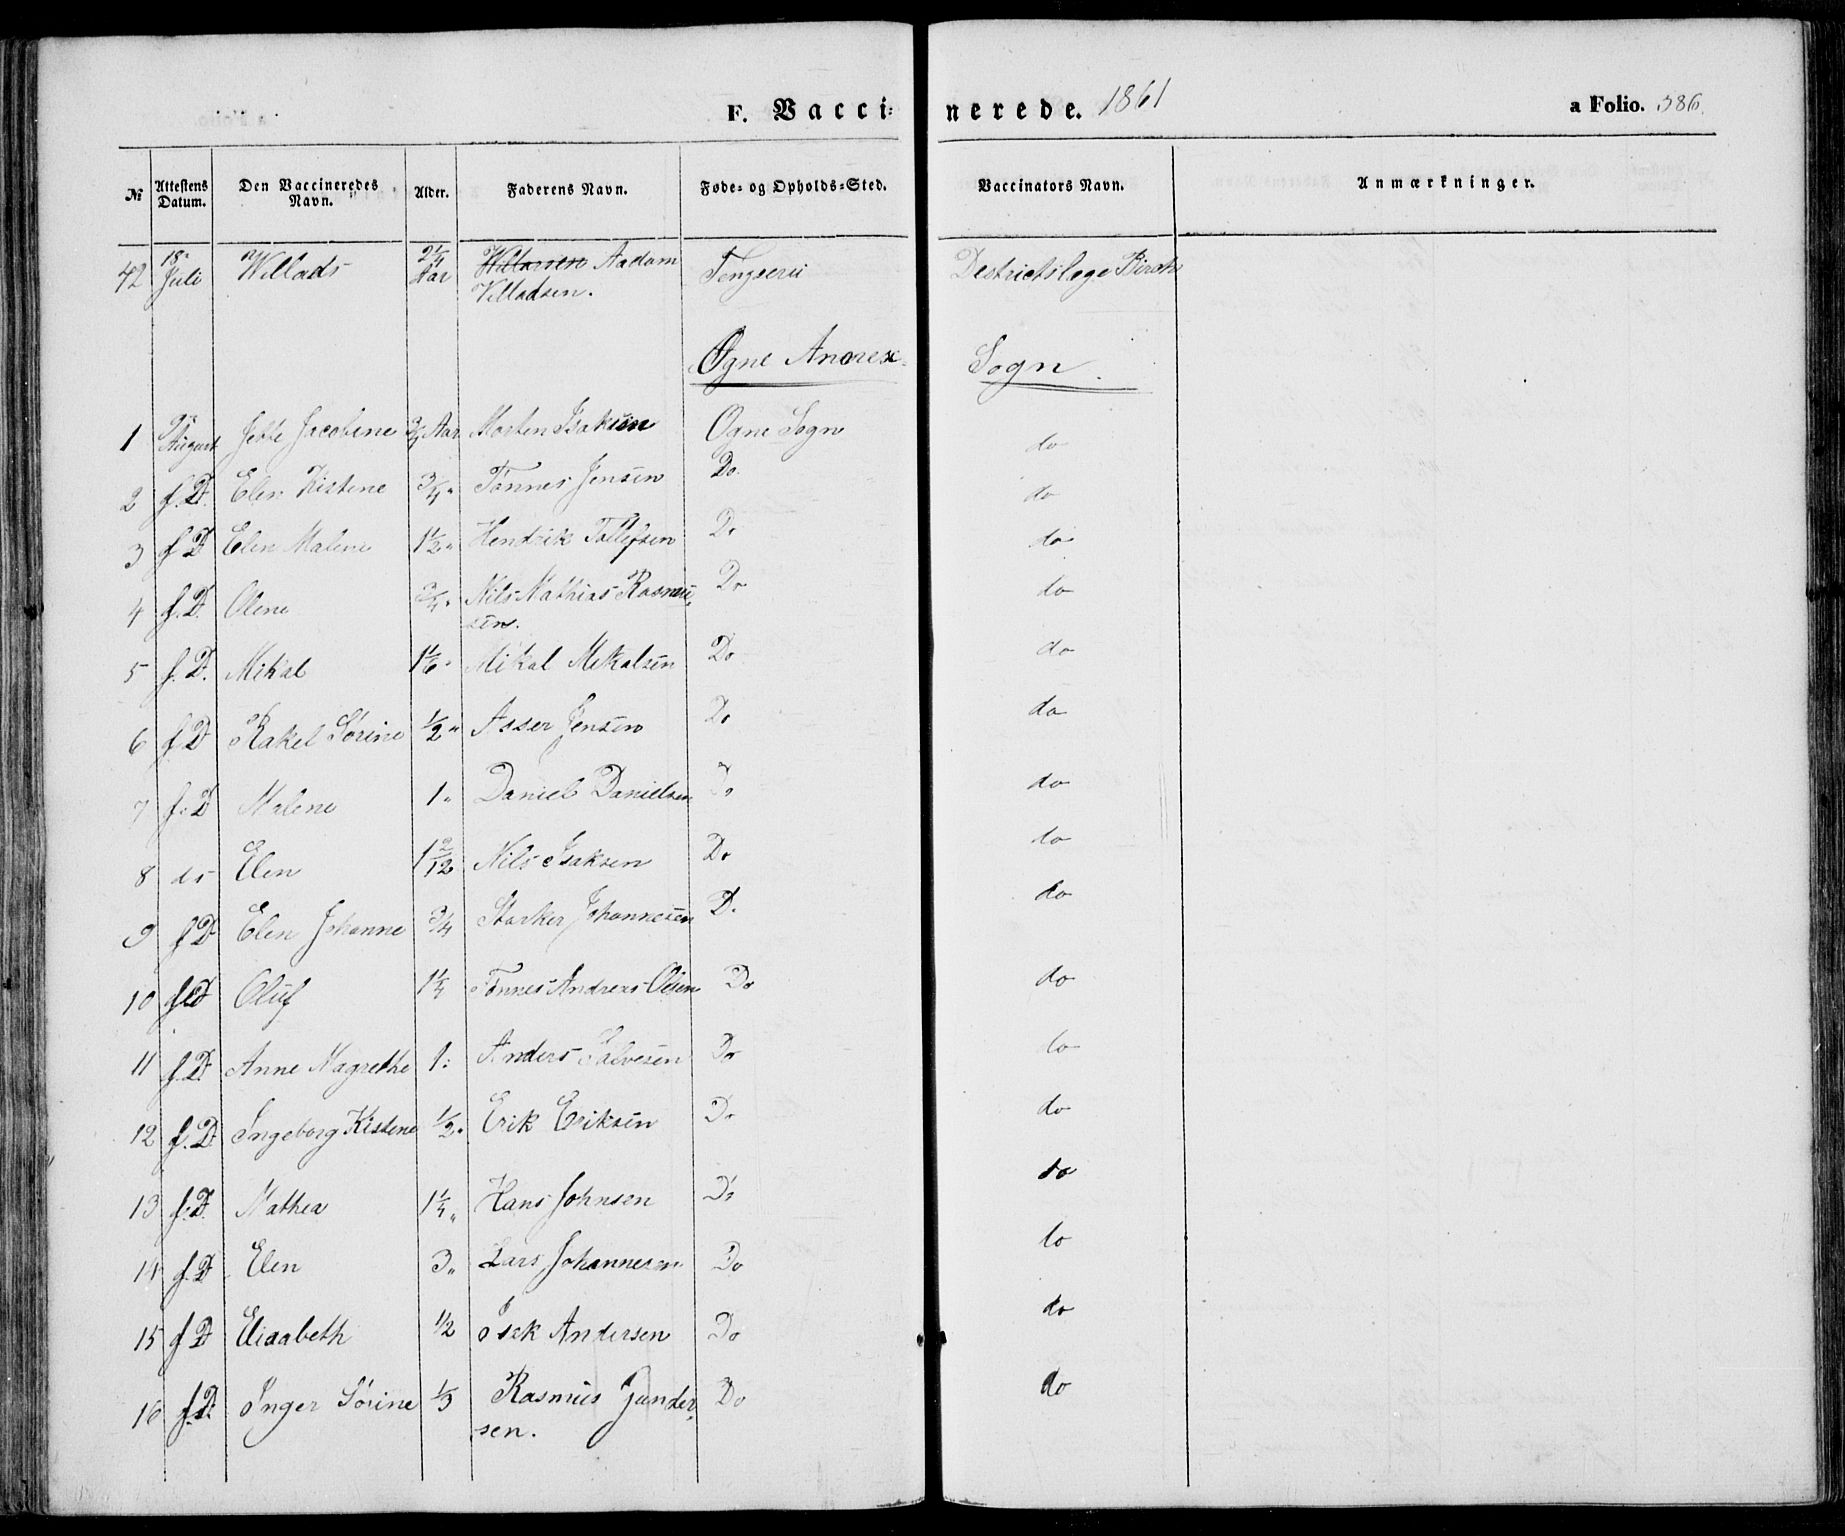 F. Vacci- nerede. 1861 a Folio. 386.
№ Attestens Datum. Den Vaccineredes Navn. Alder. Faderens Navn. Føde- og Opholds-Sted. Vaccinators Navn. Anmærkninger.
42 18 Juli Willads 2 1/4 Aar Aadam Villadsen. Tengserii Destrictslæge Birch
Ogne Annex Sogn.
1 August Jette Jacobine 3/4 Aar Morten Isaksen Ogne Sogn do
2 f. D. Elen Kistene 3/4 " Tønnes Jensen Do do
3 f D Elen Malene 1 1/2 " Hendrik Tollefsen Do do
4 f. D. Olene 3/4 " Nils Mathias Rasmusen. Do do
5 f. D. Mikal 1 1/6 " Mikal Mikalsen Do do
6 f D Rakel Sørine 1/2 " Asser Jensen Do do
7 f. D Malene 1 " Daniel Danielsen Do do
8 do Elen 1 2/12 Nils Isaksen Do do
9 f D Elen Johanne 3/4 Storker Johannesen D. do
10 f D Oluf 1 1/4 Tønnes Andreas Olsen Do do
11 f. D. Anne Magrethe 1 : Anders Salvesen Do do
12 f. D. Ingeborg Kistene 1/2 " Erik Eriksen Do do
13 f. D. Mathea 1 1/4 " Hans Johnsen Do do
14 f. D Elen 3 " Lars Johannesen Do do
15 f D Elisabeth 1/2 Isak Andersen Do do
16 f. D. Inger Sørine 1/3 Rasmus Gundersen. Do do